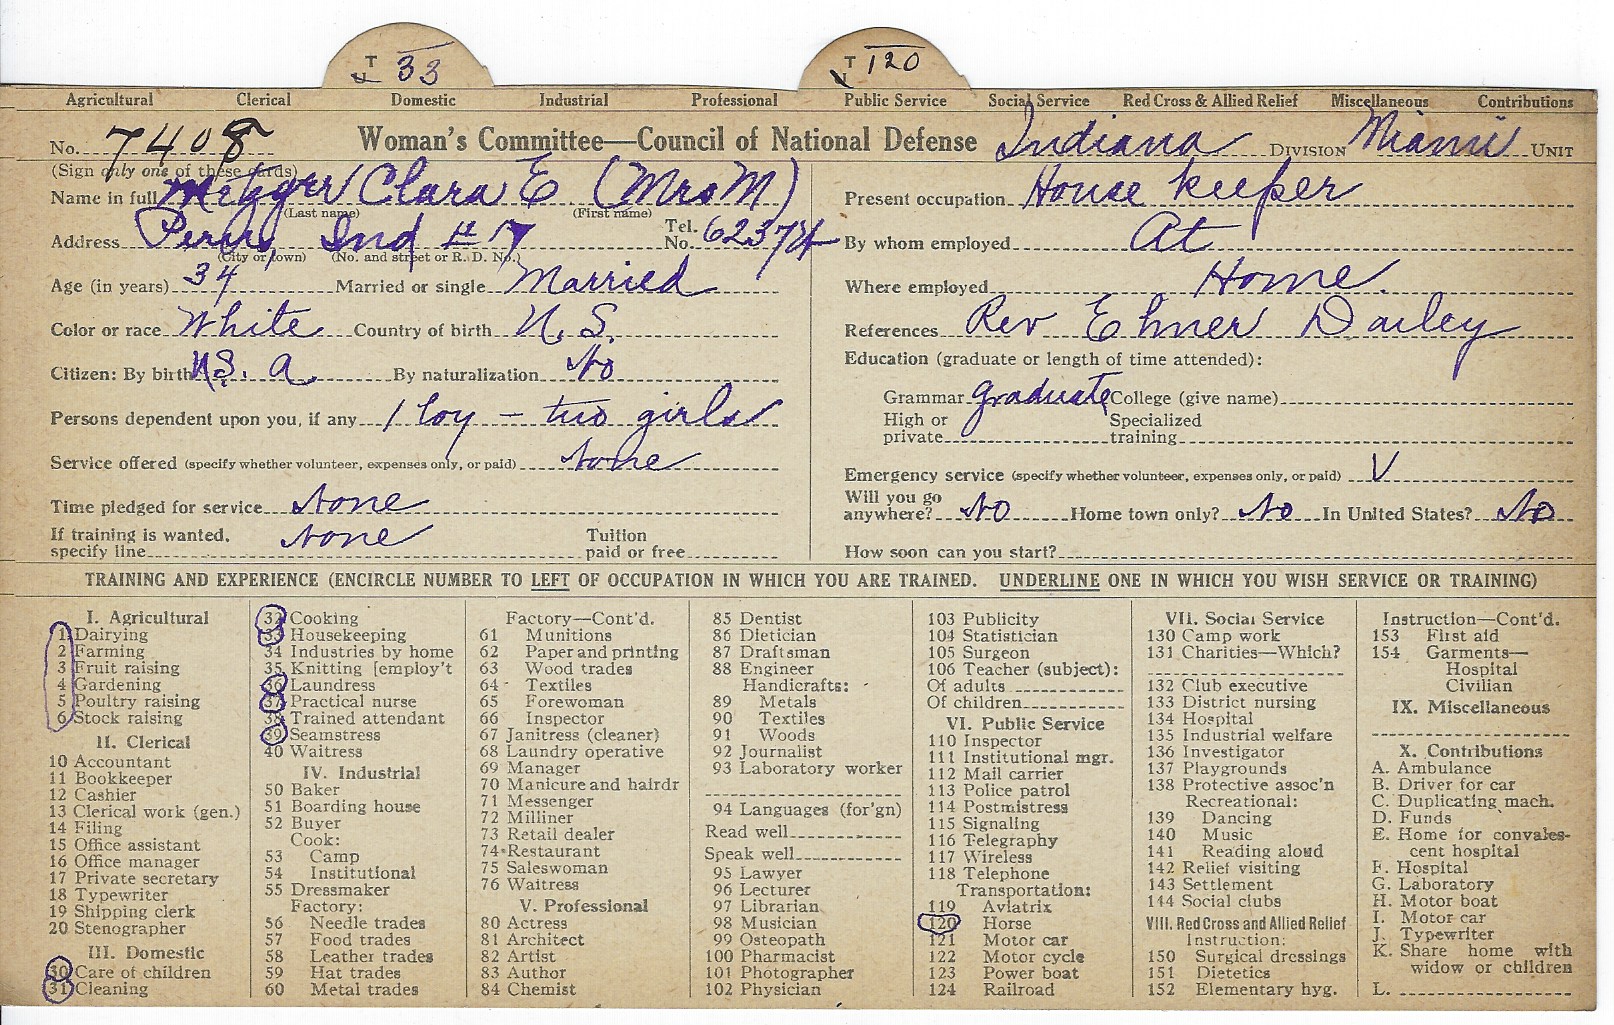 T U 33
T U 120
Agricultural Clerical Domestic Industrial Professional Public Service Social Service Red Cross & Allied Relief Miscellaneous Contributions
No. 7408 Woman's Committee—Council of National Defense Indiana DIVISION Miami UNIT
(Sign only one of these cards)
Name in full Metzger Clara E (Mrs M)
(Last name) (First name)
Address Perry Ind # 17 Tel. No. 62374
(City or town) (No. and street or R. D. No.)
Age (in years) 34 Married or single Married
Color or race White Country of birth U.S.
Citizen: By birth U.S. A By naturalization No
Persons dependent upon you, if any 1 boy - two girls
Service offered (specify whether volunteer, expenses only, or paid) None
Time pledged for service None
If training is wanted, specify line None Tuition paid or free
Present occupation House keeper
By whom employed At
Where employed Home.
References Rev Elmer Dailey
Education (graduate or length of time attended):
Grammar graduate College (give name)
High or private Specialized training
Emergency service (specify whether volunteer, expenses only, or paid) V
Will you go anywhere? No Home town only? No In United States? No
How soon can you start?
TRAINING AND EXPERIENCE (ENCIRCLE NUMBER TO LEFT OF OCCUPATION IN WHICH YOU ARE TRAINED. UNDERLINE ONE IN WHICH YOU WISH SERVICE OR TRAINING)
I. Agricultural
1 Dairying
2 Farming
3 Fruit raising
4 Gardening
5 Poultry raising
6 Stock raising
II. Clerical
10 Accountant
11 Bookkeeper
12 Cashier
13 Clerical work (gen.)
14 Filing
15 Office assistant
16 Office manager
17 Private secretary
18 Typewriter
19 Shipping clerk
20 Stenographer
III. Domestic
30 Care of children
31 Cleaning
32 Cooking
33 Housekeeping
34 Industries by home
35 Knitting [employ't
36 Laundress
37 Practical nurse
38 Trained attendant
39 Seamstress
40 Waitress
IV. Industrial
50 Baker
51 Boarding house
52 Buyer
Cook:
53 Camp
54 Institutional
55 Dressmaker
Factory:
56 Needle trades
57 Food trades
58 Leather trades
59 Hat trades
60 Metal trades
Factory—Cont'd.
61 Munitions
62 Paper and printing
63 Wood trades
64 Textiles
65 Forewoman
66 Inspector
67 Janitress (cleaner)
68 Laundry operative
69 Manager
70 Manicure and hairdr
71 Messenger
72 Milliner
73 Retail dealer
74 Restaurant
75 Saleswoman
76 Waitress
V. Professional
80 Actress
81 Architect
82 Artist
83 Author
84 Chemist
85 Dentist
86 Dietician
87 Draftsman
88 Engineer
Handicrafts:
89 Metals
90 Textiles
91 Woods
92 Journalist
93 Laboratory worker
94 Languages (for'gn)
Read well
Speak well
95 Lawyer
96 Lecturer
97 Librarian
98 Musician
99 Osteopath
100 Pharmacist
101 Photographer
102 Physician
103 Publicity
104 Statistician
105 Surgeon
106 Teacher (subject):
Of adults
Of children
VI. Public Service
110 Inspector
111 Institutional mgr.
112 Mail carrier
113 Police patrol
114 Postmistress
115 Signaling
116 Telegraphy
117 Wireless
118 Telephone
Transportation:
119 Aviatrix
120 Horse
121 Motor car
122 Motor cycle
123 Power boat
124 Railroad
VII. Social Service
130 Camp work
131 Charities—Which?
132 Club executive
133 District nursing
134 Hospital
135 Industrial welfare
136 Investigator
137 Playgrounds
138 Protective assoc'n
Recreational:
139 Dancing
140 Music
141 Reading aloud
142 Relief visiting
143 Settlement
144 Social clubs
VIII. Red Cross and Allied Relief
Instruction:
150 Surgical dressings
151 Dietetics
152 Elementary hyg.
Instruction—Cont'd.
153 First aid
154 Garments—
Hospital
Civilian
IX. Miscellaneous
X. Contributions
A. Ambulance
B. Driver for car
C. Duplicating mach.
D. Funds
E. Home for convales-
cent hospital
F. Hospital
G. Laboratory
H. Motor boat
I. Motor car
J. Typewriter
K. Share home with
widow or children
L.